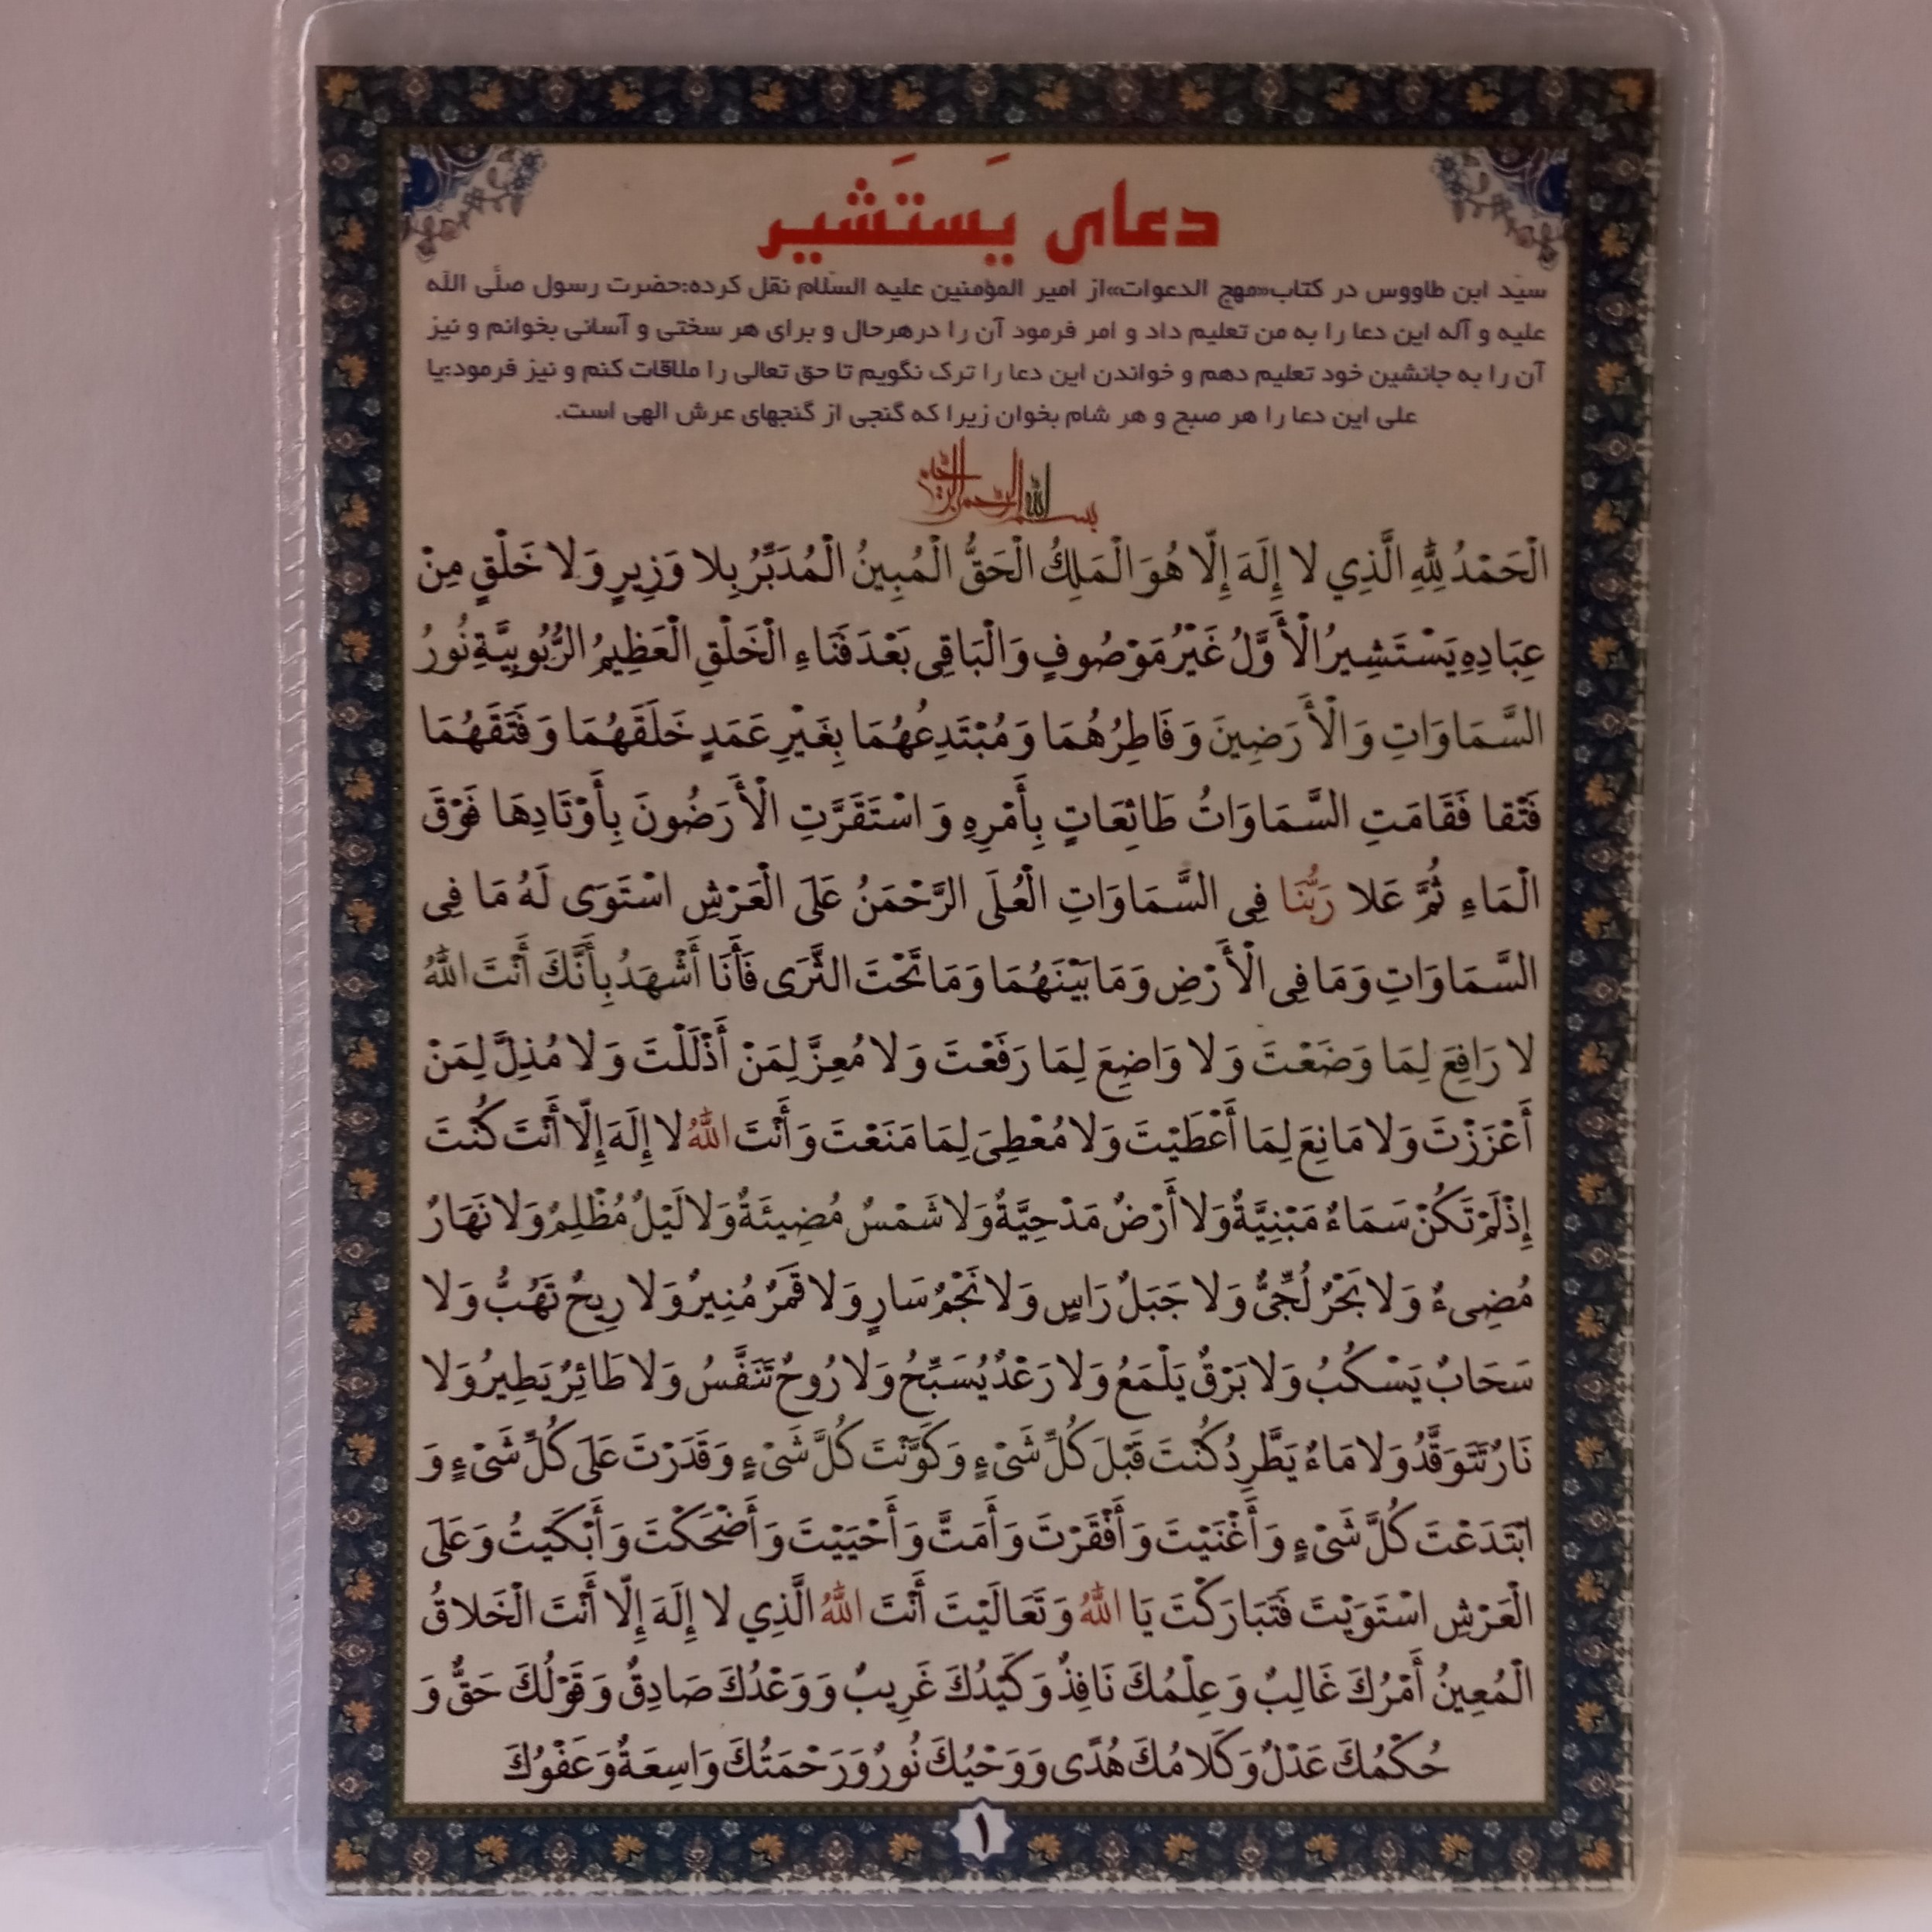 دعای یَستَشیر
سیّد ابن طاووس در کتاب«مهج الدعوات»از امیر المؤمنین علیه السّلام نقل کرده:حضرت رسول صلّی اللّه
علیه و آله این دعا را به من تعلیم داد و امر فرمود آن را درهرحال و برای هر سختی و آسانی بخوانم و نیز
آن را به جانشین خود تعلیم دهم و خواندن این دعا را ترک نگویم تا حق تعالی را ملاقات کنم و نیز فرمود:یا
علی این دعا را هر صبح و هر شام بخوان زیرا که گنجی از گنجهای عرش الهی است.
بسم الله الرحمن الرحیم
الْحَمْدُ لِلَّهِ الَّذِي لا إِلَهَ إِلّا هُوَ الْمَلِكُ الْحَقُّ الْمُبِينُ الْمُدَبِّرُ بِلا وَزِيرٍ وَلا خَلْقٍ مِنْ
عِبَادِهِ يَسْتَشِيرُ الْأَوَّلُ غَيْرُ مَوْصُوفٍ وَالْبَاقِي بَعْدَ فَنَاءِ الْخَلْقِ الْعَظِيمُ الرُّبُوبِيَّةِ نُورُ
السَّمَاوَاتِ وَالْأَرَضِينَ وَفَاطِرُهُمَا وَمُبْتَدِعُهُمَا بِغَيْرِ عَمَدٍ خَلَقَهُمَا وَفَتَقَهُمَا
فَتْقا فَقَامَتِ السَّمَاوَاتُ طَائِعَاتٍ بِأَمْرِهِ وَاسْتَقَرَّتِ الْأَرَضُونَ بِأَوْتَادِهَا فَوْقَ
الْمَاءِ ثُمَّ عَلا رَبُّنَا فِي السَّمَاوَاتِ الْعُلَى الرَّحْمَنُ عَلَى الْعَرْشِ اسْتَوَى لَهُ مَا فِي
السَّمَاوَاتِ وَمَا فِي الْأَرْضِ وَمَا بَيْنَهُمَا وَمَا تَحْتَ الثَّرَى فَأَنَا أَشْهَدُ بِأَنَّكَ أَنْتَ اللَّهُ
لا رَافِعَ لِمَا وَضَعْتَ وَلا وَاضِعَ لِمَا رَفَعْتَ وَلا مُعِزَّ لِمَنْ أَذْلَلْتَ وَلا مُذِلَّ لِمَنْ
أَعْزَزْتَ وَلا مَانِعَ لِمَا أَعْطَيْتَ وَلا مُعْطِيَ لِمَا مَنَعْتَ وَأَنْتَ اللَّهُ لا إِلَهَ إِلّا أَنْتَ كُنْتَ
إِذْ لَمْ تَكُنْ سَمَاءٌ مَبْنِيَّةٌ وَلا أَرْضٌ مَدْحِيَّةٌ وَلا شَمْسٌ مُضِيئَةٌ وَلا لَيْلٌ مُظْلِمٌ وَلا نَهَارٌ
مُضِيءٌ وَلا بَحْرٌ لُجِّيٌّ وَلا جَبَلٌ رَاسٍ وَلا نَجْمٌ سَارٍ وَلا قَمَرٌ مُنِيرٌ وَلا رِيحٌ تَهُبُّ وَلا
سَحَابٌ يَسْكُبُ وَلا بَرْقٌ يَلْمَعُ وَلا رَعْدٌ يُسَبِّحُ وَلا رُوحٌ تَنَفَّسُ وَلا طَائِرٌ يَطِيرُ وَلا
نَارٌ تَتَوَقَّدُ وَلا مَاءٌ يَطَّرِدُ كُنْتَ قَبْلَ كُلِّ شَيْءٍ وَكَوَّنْتَ كُلَّ شَيْءٍ وَقَدَرْتَ عَلَى كُلِّ شَيْءٍ وَ
ابْتَدَعْتَ كُلَّ شَيْءٍ وَأَغْنَيْتَ وَأَفْقَرْتَ وَأَمَتَّ وَأَحْيَيْتَ وَأَضْحَكْتَ وَأَبْكَيْتُ وَعَلَى
الْعَرْشِ اسْتَوَيْتَ فَتَبَارَكْتَ يَا اللَّهُ وَتَعَالَيْتَ أَنْتَ اللَّهُ الَّذِي لا إِلَهَ إِلّا أَنْتَ الْخَلاقُ
الْمُعِينُ أَمْرُكَ غَالِبٌ وَعِلْمُكَ نَافِذٌ وَكَيْدُكَ غَرِيبٌ وَوَعْدُكَ صَادِقٌ وَقَوْلُكَ حَقٌّ وَ
حُكْمُكَ عَدْلٌ وَكَلامُكَ هُدًى وَوَحْيُكَ نُورٌ وَرَحْمَتُكَ وَاسِعَةٌ وَعَفْوُكَ
۱